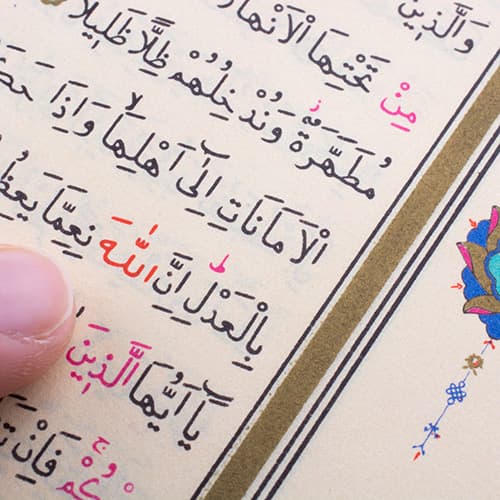 وَالَّذِينَ
مِنْ تَحْتِهَا الْاَنْهَا
مُطَهَّرَةٌ وَنُدْخِلُهُمْ ظِلًّا ظَلِيلًا
الْاَمَانَاتِ اِلٰٓى اَهْلِهَا وَاِذَا
بِالْعَدْلِ اِنَّ اللّٰهَ نِعِمَّا يَعِظُ
يَٓا اَيُّهَا الَّذِينَ
كُمْ فَاِنْ